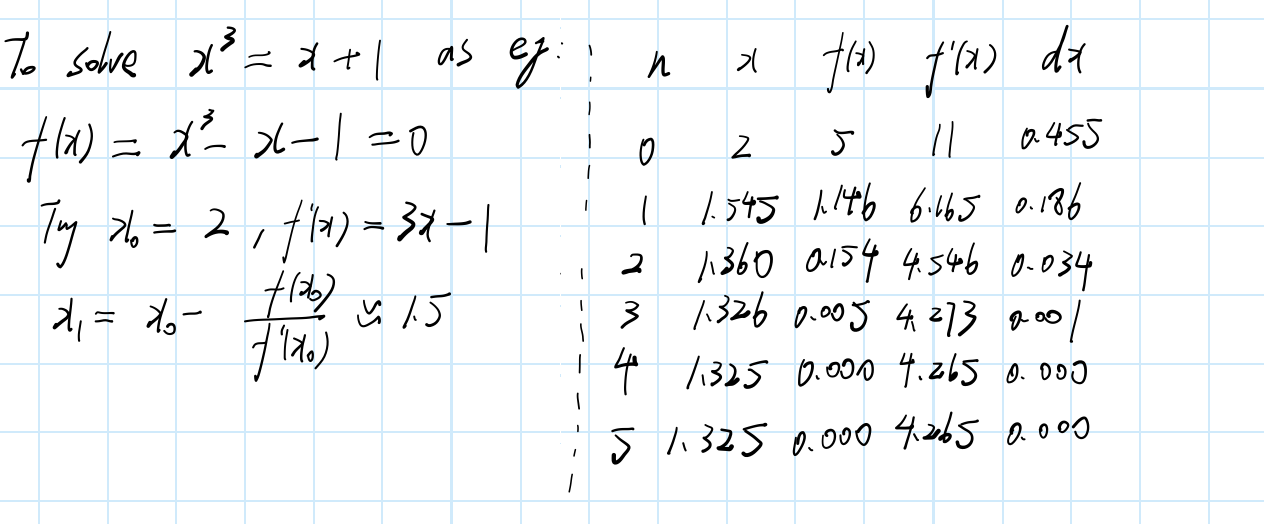 To solve x³ = x + 1 as eg:
f(x) = x³ - x - 1 = 0
Try x₀ = 2, f'(x) = 3x - 1
x₁ = x₀ - f(x₀)/f'(x₀) ≈ 1.5
n x f(x) f'(x) dx
0 2 5 11 0.455
1 1.545 1.146 6.165 0.186
2 1.360 0.154 4.546 0.034
3 1.326 0.005 4.273 0.001
4 1.325 0.000 4.265 0.000
5 1.325 0.000 4.265 0.000